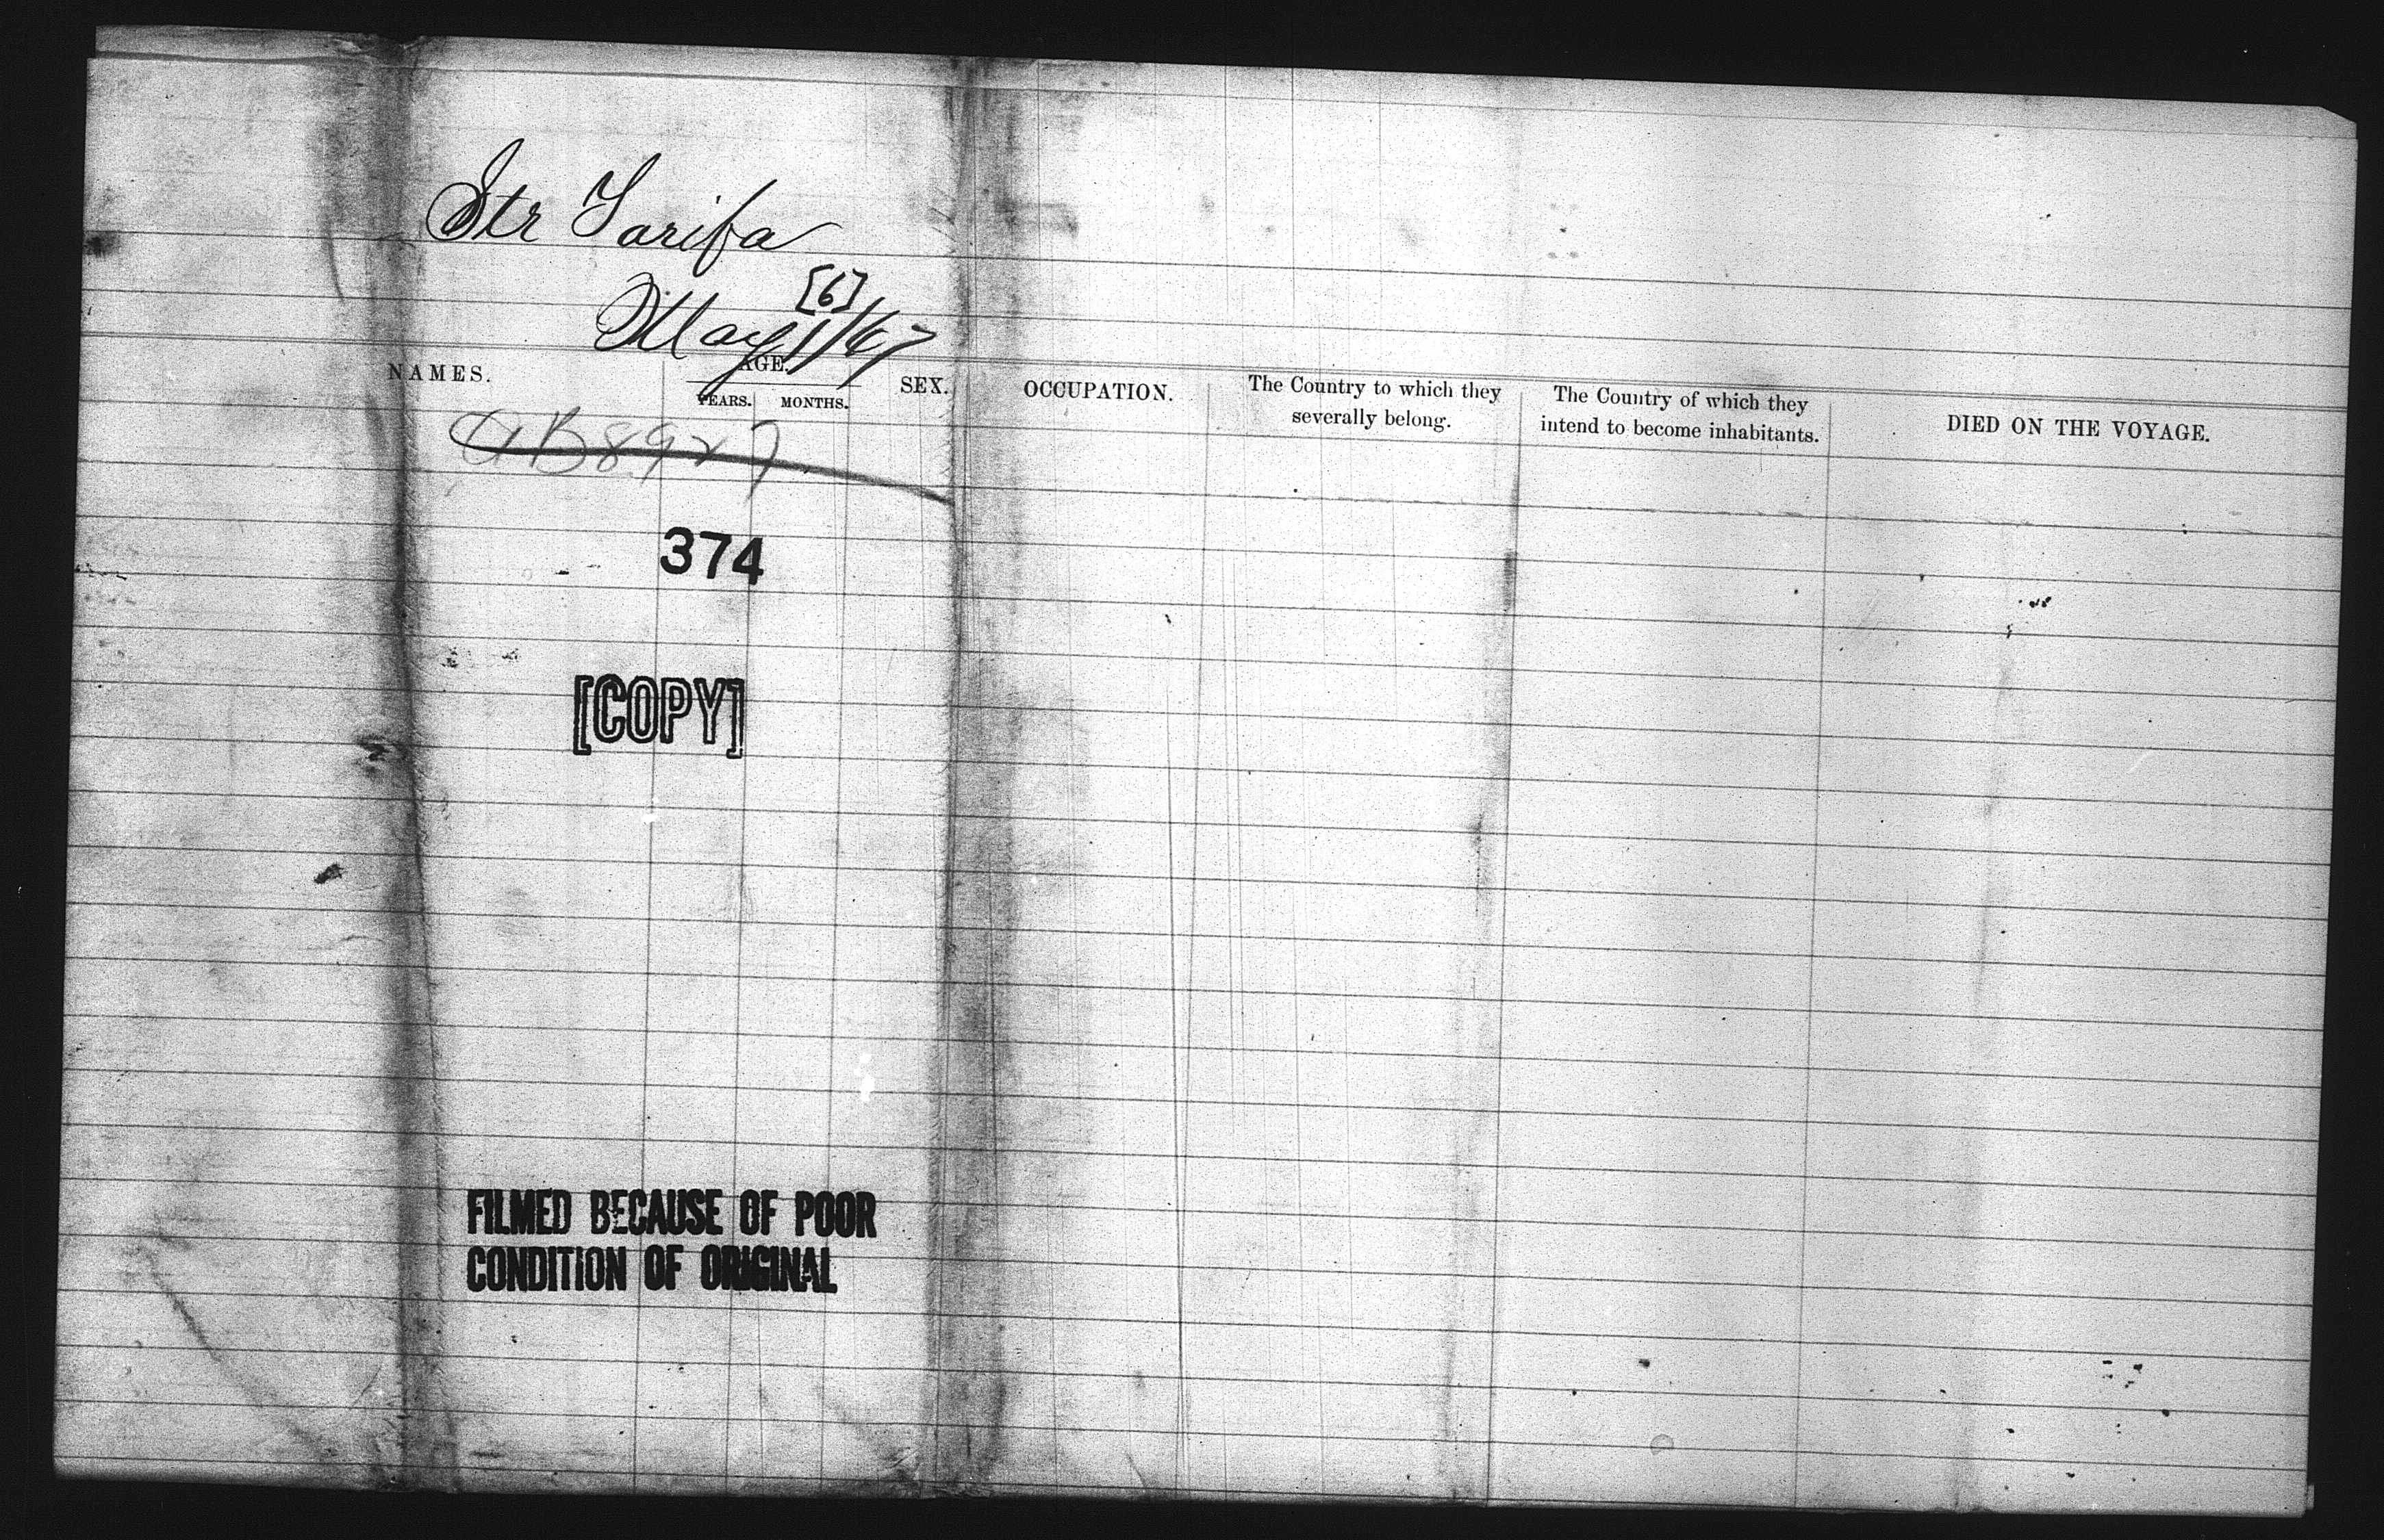 Str Tarifa
[6]
May 1/67
NAMES. AGE. SEX. OCCUPATION. The Country to which they severally belong. The Country of which they intend to become inhabitants. DIED ON THE VOYAGE.
YEARS. MONTHS.
374
[COPY]
FILMED BECAUSE OF POOR
CONDITION OF ORIGINAL